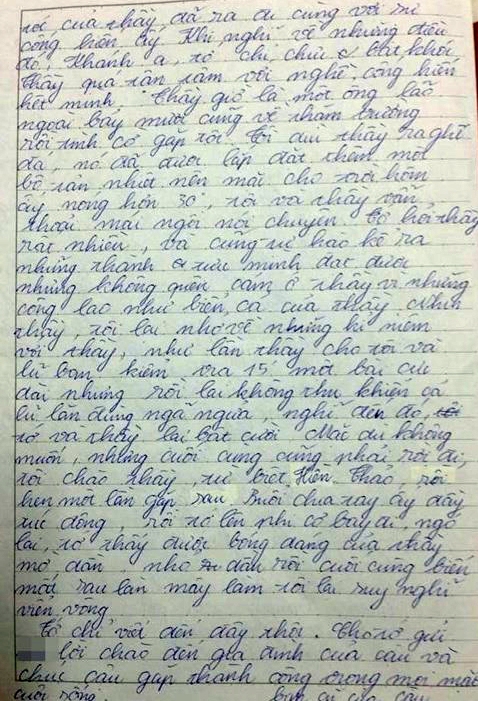 tới của thầy đã ra đi cùng với sự
cống hiến ấy. Khi nghĩ về những điều
đó, Khanh ạ, tớ chỉ chực oà bật khóc
Thầy quá tận tâm với nghề, cống hiến
hết mình. Thầy giờ là một ông lão
ngoài bảy mươi cũng về thăm trường
rồi tình cờ gặp tôi. Tôi dìu thầy ra ghế
đá, nó đã được lắp đặt thêm một
bộ tản nhiệt nên mặc cho trời hôm
ấy nóng hơn 30°, tôi và thầy vẫn
thoải mái ngồi nói chuyện. Tớ hỏi thầy
rất nhiều, và cũng tự hào kể ra
những thành tựu mình đạt được
nhưng không quên cảm ơn thầy vì những
công lao như biển cả của thầy. Nhìn
thầy, tôi lại nhớ về những kỉ niệm
với thầy, như lần thầy cho tôi và
lũ bạn kiểm tra 15' một bài cực
dài nhưng rồi lại không thu khiến cả
lũ lăn đùng ngã ngửa, nghĩ đến đó,
tớ và thầy lại bật cười. Mặc dù không
muốn, nhưng cuối cùng cũng phải rời đi;
tôi chào thầy, từ biệt Hiền Thảo, rồi
hẹn một lần gặp sau. Buổi chia tay ấy đầy
xúc động, rồi tớ lên phi cơ bay đi, ngó
lại, tớ thấy được bóng dáng của thầy
mờ dần, nhỏ dần rồi cuối cùng biến
mất sau làn mây làm tôi lại suy nghĩ
viển vông
Tớ chỉ viết đến đây thôi. Cho tớ gửi
lời chào đến gia đình của cậu và
chúc cậu gặp thành công trong mọi mặt
cuộc sống. bạn cũ của cậu